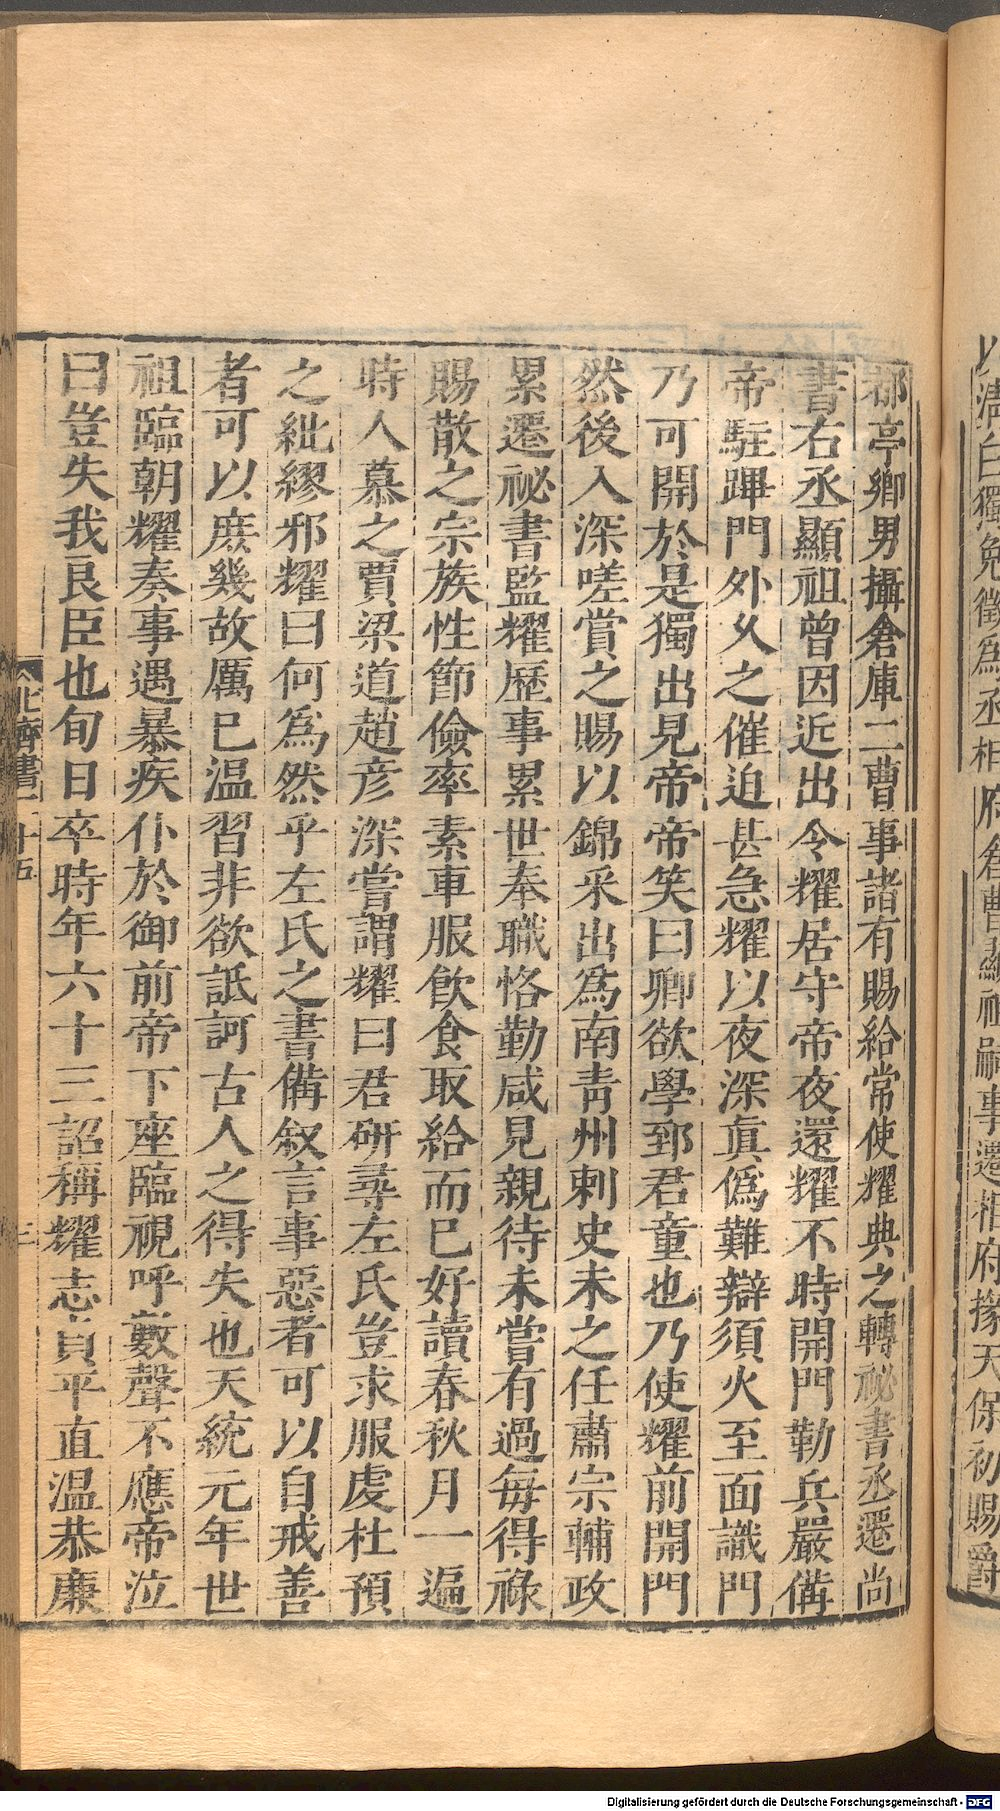 以清白獨免徵為丞相府倉曹顯祖嗣事遷相府掾天保初賜爵
都亭鄉男攝倉庫二曹事諸有賜給常使耀典之轉祕書丞遷尚
書右丞顯祖曾因近出令耀居守帝夜還耀不時開門勒兵嚴備
帝駐蹕門外久之催迫甚急耀以夜深真偽難辯須火至面識門
乃可開於是獨出見帝帝笑曰卿欲學郅君章也乃使耀前開門
然後入深嗟賞之賜以錦采出爲南青州刺史未之任肅宗輔政
累遷祕書監耀歷事累世奉職恪勤咸見親待未嘗有過每得祿
賜散之宗族性節儉率素車服飲食取給而已好讀春秋月一遍
時人慕之賈梁道趙彦深嘗謂耀曰君研尋左氏豈求服虔杜預
之紕繆邪耀曰何爲然乎左氏之書備叙言事惡者可以自戒善
者可以庶幾故厲已温習非欲詆訶古人之得失也天統元年世
祖臨朝耀奏事遇暴疾仆於御前帝下座臨視呼數聲不應帝泣
曰豈失我良臣也旬日卒時年六十三詔稱耀志貞平直温恭廉
北齊書二十五
三
Digitalisierung gefördert durch die Deutsche Forschungsgemeinschaft - DFG